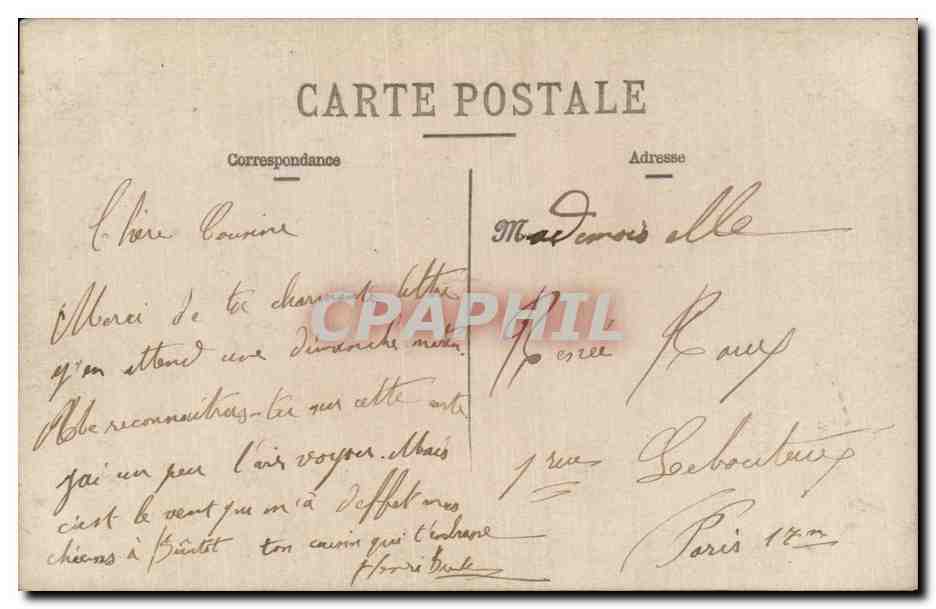 CARTE POSTALE
Correspondance
Chère Cousine
Merci de ta charmante lettre
j'en attend une dimanche matin.
Me reconnaitras-tu sur cette carte
j'ai un peu l'air voyou. Mais
c'est le vent qui m'a
à Bientôt ton cousin qui t'embrasse
Henri
Adresse
Mademoiselle
Renée Roux
1 rue Lebouteux
Paris 17m
CPAPHIL